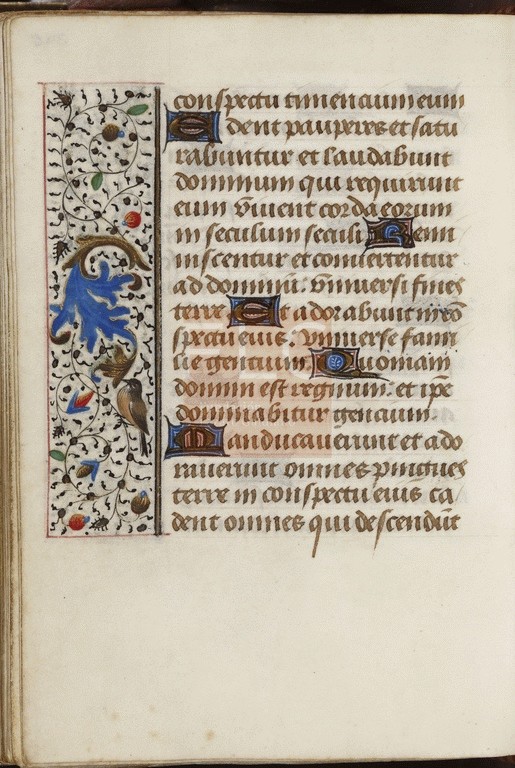 conspectu timencium eum
Edent pauperes et satu
rabuntur et laudabunt
dominum qui requirunt
eum vivent corda eorum
in seculum seculi Remi
niscentur et convertentur
ad dominū. vniversi fines
terre Et adorabunt in cō
spectu eius. vniverse fami
lie gentium. Quoniam
domini est regnum. et ipe
dominabitur gencium.
Manducaverunt et ado
raverunt omnes pingues
terre in conspectu eius ca/
dent omnes qui descendūt